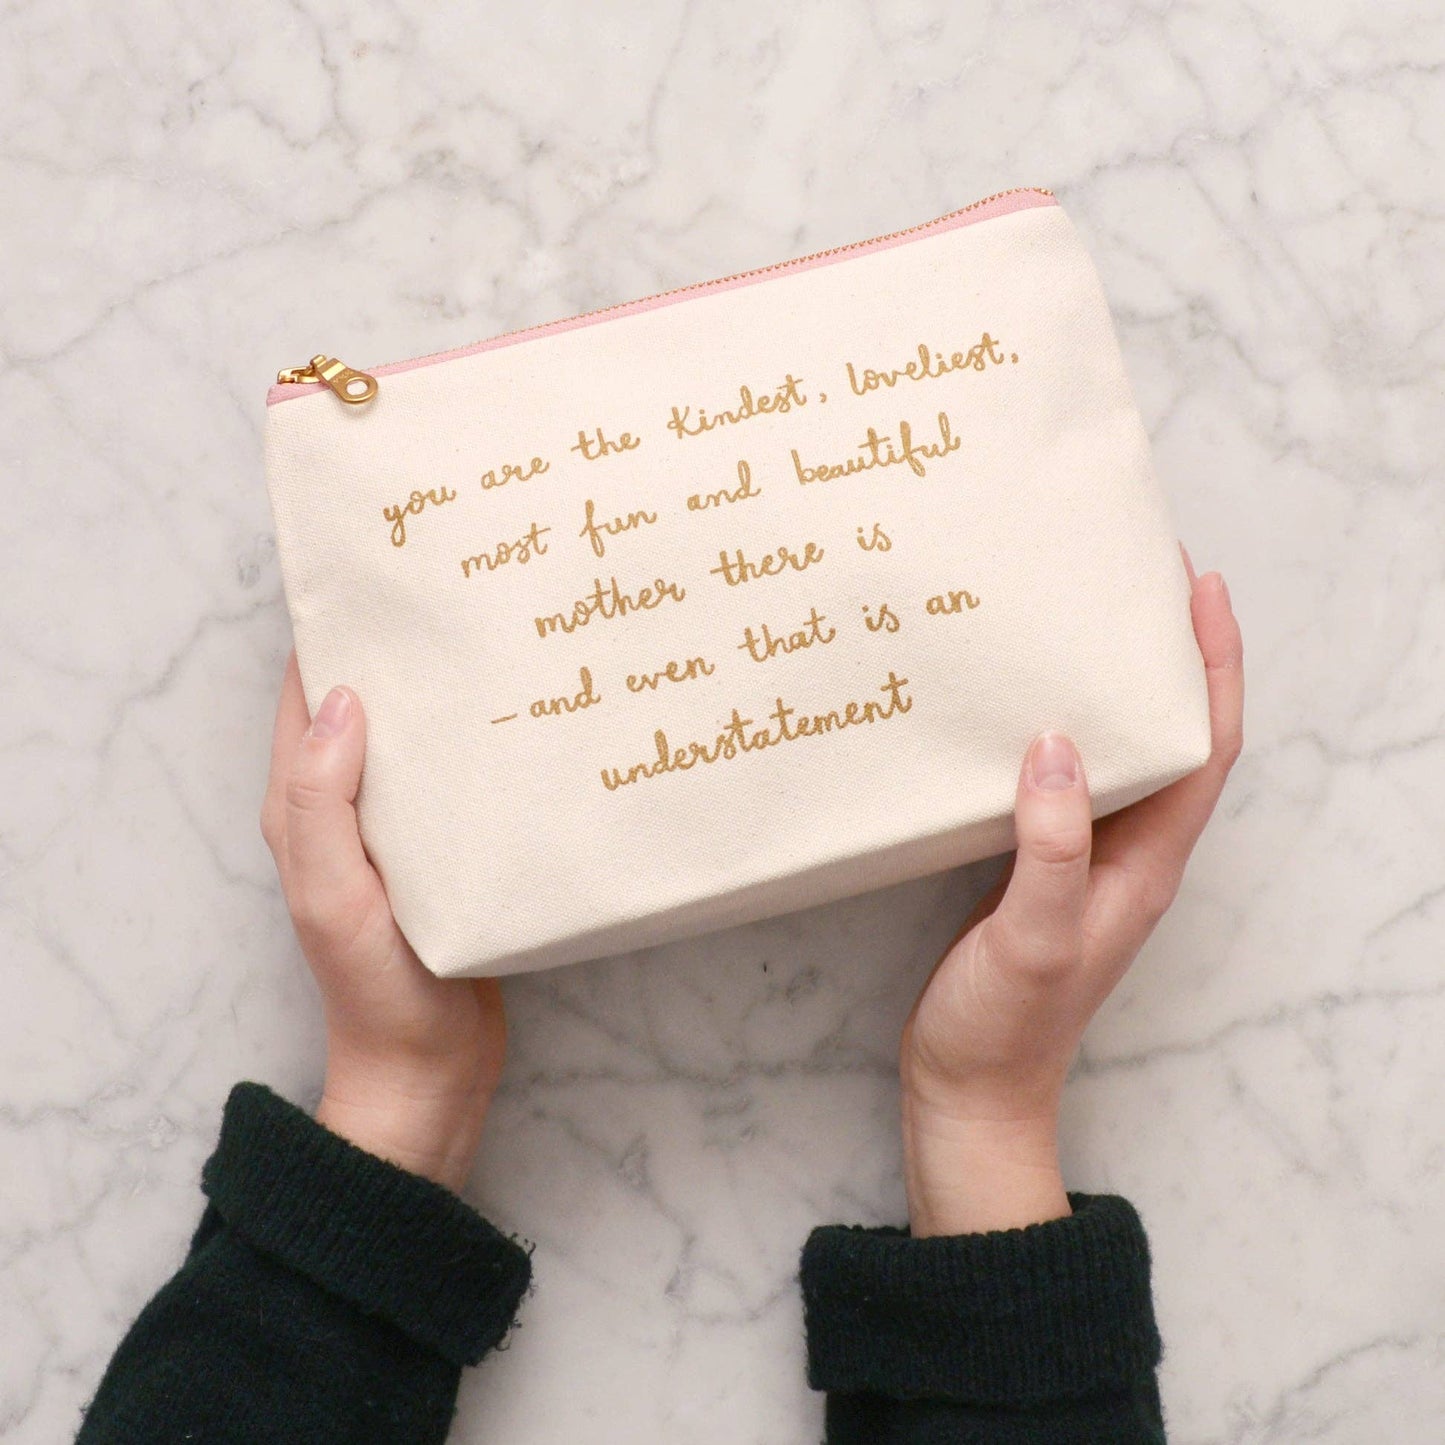 you are the kindest, loveliest,
most fun and beautiful
mother there is
– and even that is an
understatement